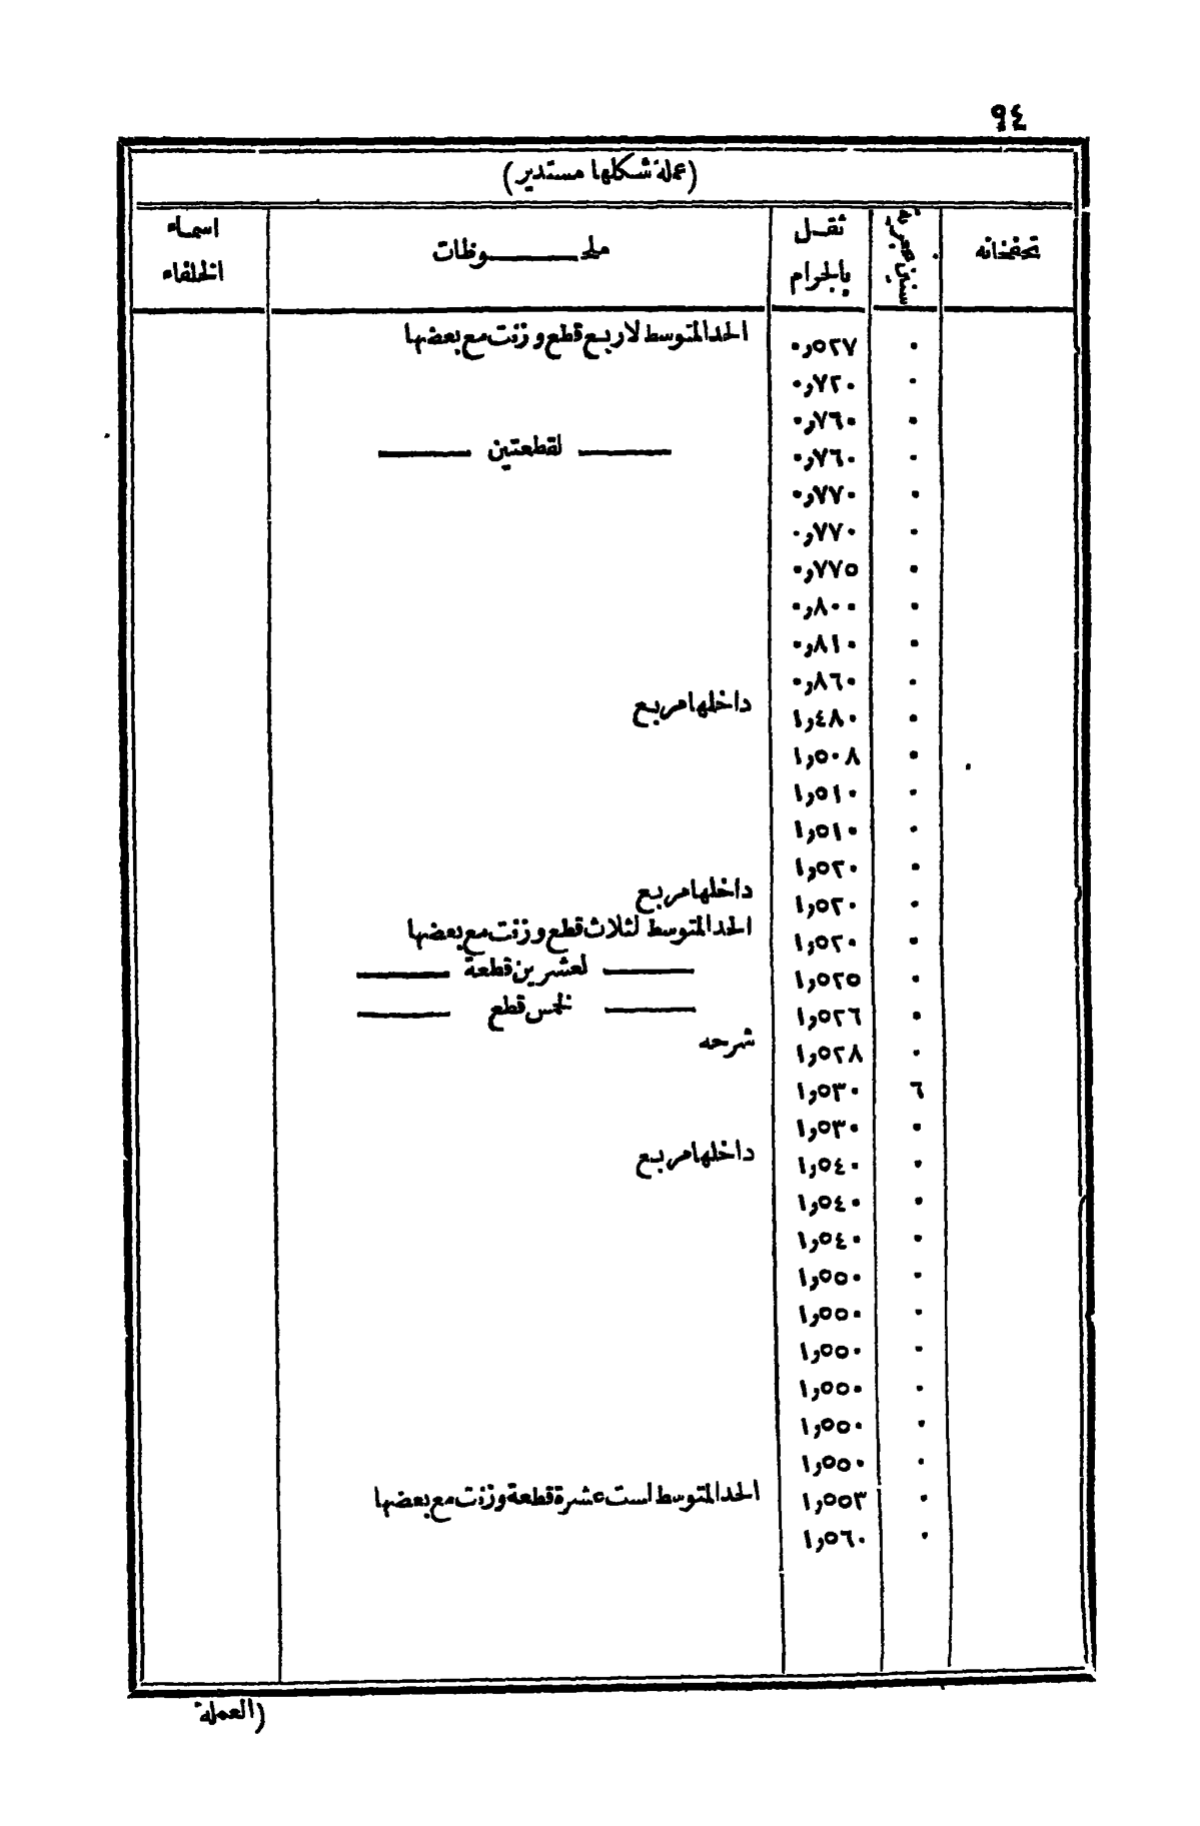 ٩٤
(عملة شكلها مستدير)
تحفخانه
سنين هجرية
ثقل بالجرام
ملحـوظات
اسماء الخلفاء
٠ ٠٫٥٢٧ الحد المتوسط لاربع قطع وزنت مع بعضها
٠ ٠٫٧٢٠
٠ ٠٫٧٦٠
٠ ٠٫٧٦٠ — لقطعتين —
٠ ٠٫٧٧٠
٠ ٠٫٧٧٠
٠ ٠٫٧٧٥
٠ ٠٫٨٠٠
٠ ٠٫٨١٠
٠ ٠٫٨٦٠
٠ ١٫٤٨٠ داخلها مربع
٠ ١٫٥٠٨
٠ ١٫٥١٠
٠ ١٫٥١٠
٠ ١٫٥٢٠
٠ ١٫٥٢٠ داخلها مربع
٠ ١٫٥٢٠ الحد المتوسط لثلاث قطع وزنت مع بعضها
٠ ١٫٥٢٥ — لعشرين قطعة —
٠ ١٫٥٢٦ — لخمس قطع —
٠ ١٫٥٢٨ شرحه
٦ ١٫٥٣٠
٠ ١٫٥٣٠
٠ ١٫٥٤٠ داخلها مربع
٠ ١٫٥٤٠
٠ ١٫٥٤٠
٠ ١٫٥٥٠
٠ ١٫٥٥٠
٠ ١٫٥٥٠
٠ ١٫٥٥٠
٠ ١٫٥٥٠
٠ ١٫٥٥٠
٠ ١٫٥٥٣ الحد المتوسط لست عشرة قطعة وزنت مع بعضها
٠ ١٫٥٦٠
(العملة